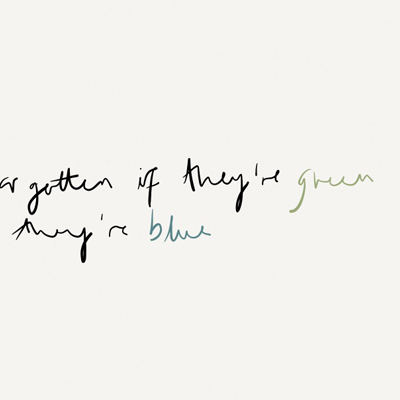 orgotten if they're green
they're blue